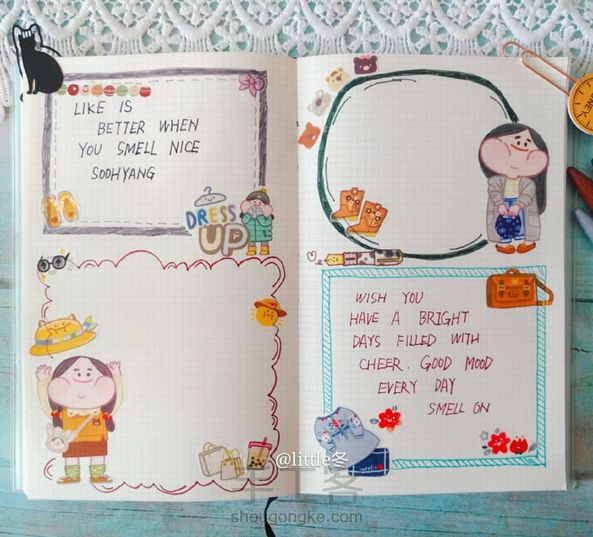 LIKE IS
BETTER WHEN
YOU SMELL NICE
SOOHYANG
DRESS
UP
WISH YOU
HAVE A BRIGHT
DAYS FILLED WITH
CHEER. GOOD MOOD
EVERY DAY
SMELL ON
@little冬
shougongke.com